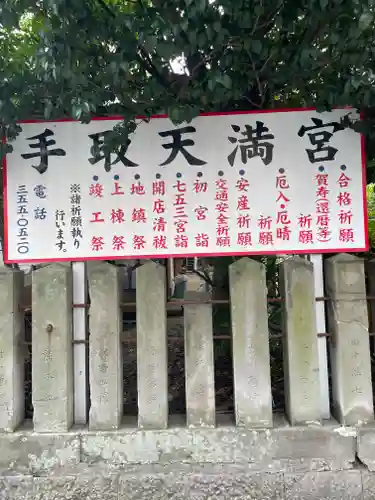 手取天満宮
合格祈願
賀寿(還暦等)祈願
厄入・厄晴祈願
安産祈願
交通安全祈願
初宮詣
七五三宮詣
開店清祓
地鎮祭
上棟祭
竣工祭
※諸祈願祭行います。
電話
三五五・〇五二〇